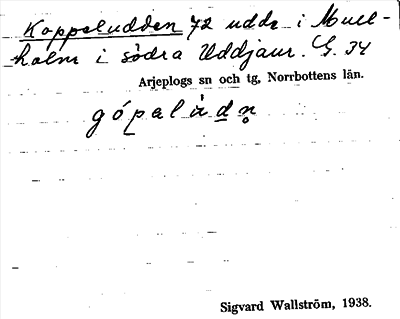 Kappeludden 72 udde i Mull-
holm i södra Uddjaur. G. 34
Arjeplogs sn och tg, Norrbottens län.
gópalùdn̥
Sigvard Wallström, 1938.